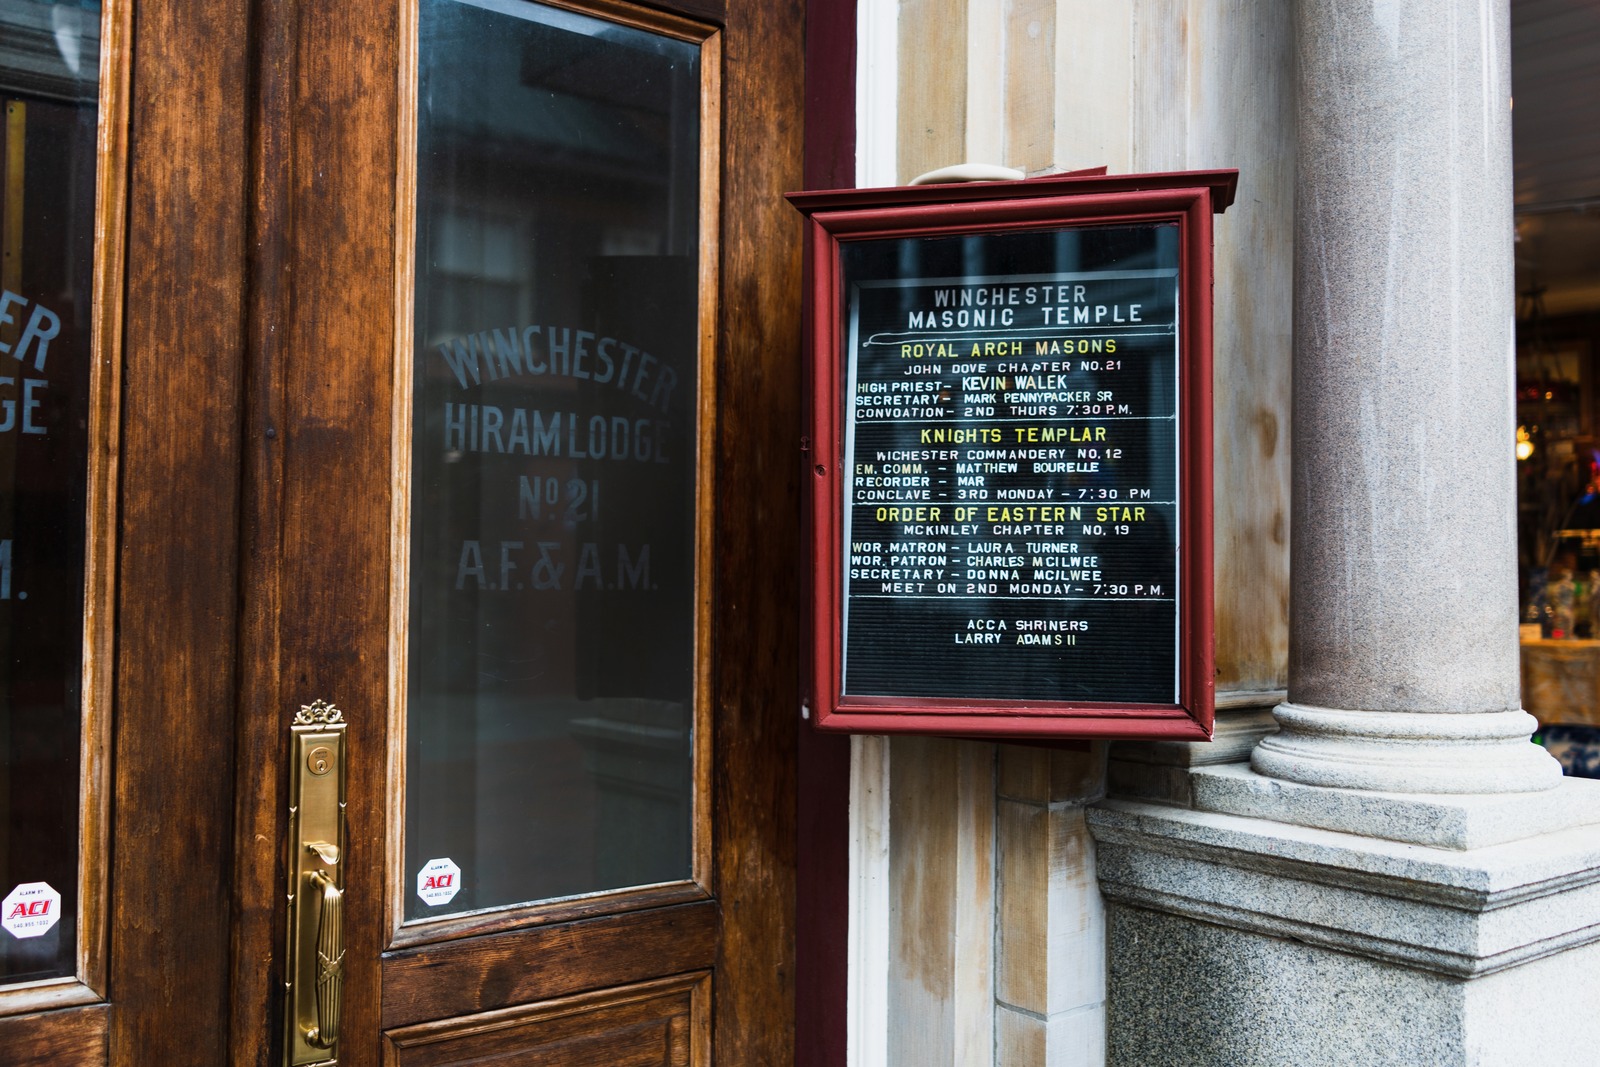 ER
GE
M.
ALARM BY
ACI
540.865.1032
WINCHESTER
HIRAM LODGE
No 21
A.F. & A.M.
ALARM BY
ACI
WINCHESTER
MASONIC TEMPLE
ROYAL ARCH MASONS
JOHN DOVE CHAPTER NO.21
HIGH PRIEST- KEVIN WALEK
SECRETARY- MARK PENNYPACKER SR
CONVOATION- 2ND THURS 7:30 P.M.
KNIGHTS TEMPLAR
WICHESTER COMMANDERY NO.12
EM. COMM. - MATTHEW BOURELLE
RECORDER - MAR
CONCLAVE - 3RD MONDAY - 7:30 PM
ORDER OF EASTERN STAR
MCKINLEY CHAPTER NO. 19
WOR.MATRON - LAURA TURNER
WOR.PATRON - CHARLES MCILWEE
SECRETARY - DONNA MCILWEE
MEET ON 2ND MONDAY - 7:30 P.M.
ACCA SHRINERS
LARRY ADAMS II